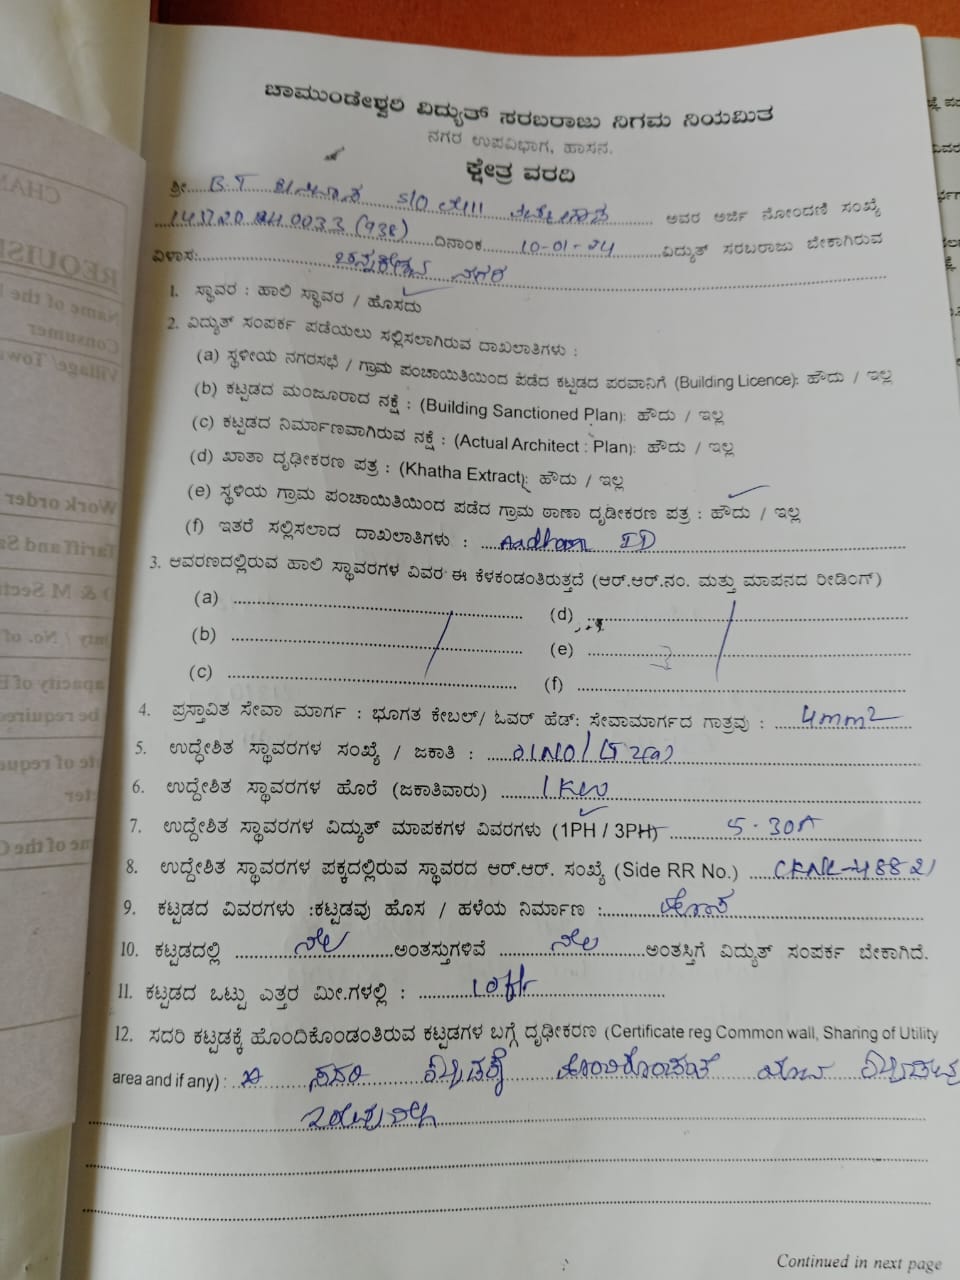 ಚಾಮುಂಡೇಶ್ವರಿ ವಿದ್ಯುತ್ ಸರಬರಾಜು ನಿಗಮ ನಿಯಮಿತ
ನಗರ ಉಪವಿಭಾಗ, ಹಾಸನ.
ಕ್ಷೇತ್ರ ವರದಿ
ಶ್ರೀ. B.T S/O ಅವರ ಅರ್ಜಿ ನೋಂದಣಿ ಸಂಖ್ಯೆ
(938) ದಿನಾಂಕ 10-01-24 ವಿದ್ಯುತ್ ಸರಬರಾಜು ಬೇಕಾಗಿರುವ
ವಿಳಾಸ: ನಗರ
1. ಸ್ಥಾವರ : ಹಾಲಿ ಸ್ಥಾವರ / ಹೊಸದು
2. ವಿದ್ಯುತ್ ಸಂಪರ್ಕ ಪಡೆಯಲು ಸಲ್ಲಿಸಲಾಗಿರುವ ದಾಖಲಾತಿಗಳು :
(a) ಸ್ಥಳೀಯ ನಗರಸಭೆ / ಗ್ರಾಮ ಪಂಚಾಯಿತಿಯಿಂದ ಪಡೆದ ಕಟ್ಟಡದ ಪರವಾನಿಗೆ (Building Licence): ಹೌದು / ಇಲ್ಲ
(b) ಕಟ್ಟಡದ ಮಂಜೂರಾದ ನಕ್ಷೆ : (Building Sanctioned Plan): ಹೌದು / ಇಲ್ಲ
(c) ಕಟ್ಟಡದ ನಿರ್ಮಾಣವಾಗಿರುವ ನಕ್ಷೆ : (Actual Architect : Plan): ಹೌದು / ಇಲ್ಲ
(d) ಖಾತಾ ದೃಢೀಕರಣ ಪತ್ರ : (Khatha Extract): ಹೌದು / ಇಲ್ಲ
(e) ಸ್ಥಳಿಯ ಗ್ರಾಮ ಪಂಚಾಯಿತಿಯಿಂದ ಪಡೆದ ಗ್ರಾಮ ಠಾಣಾ ದೃಡೀಕರಣ ಪತ್ರ : ಹೌದು / ಇಲ್ಲ
(f) ಇತರೆ ಸಲ್ಲಿಸಲಾದ ದಾಖಲಾತಿಗಳು : Aadhaar ID
3. ಆವರಣದಲ್ಲಿರುವ ಹಾಲಿ ಸ್ಥಾವರಗಳ ವಿವರ ಈ ಕೆಳಕಂಡಂತಿರುತ್ತದೆ (ಆರ್.ಆರ್.ನಂ. ಮತ್ತು ಮಾಪನದ ರೀಡಿಂಗ್)
(a) (d)
(b) (e)
(c) (f)
4. ಪ್ರಸ್ತಾವಿತ ಸೇವಾ ಮಾರ್ಗ : ಭೂಗತ ಕೇಬಲ್/ ಓವರ್ ಹೆಡ್: ಸೇವಾಮಾರ್ಗದ ಗಾತ್ರವು : 4mm2
5. ಉದ್ಧೇಶಿತ ಸ್ಥಾವರಗಳ ಸಂಖ್ಯೆ / ಜಕಾತಿ : 01NO/
6. ಉದ್ದೇಶಿತ ಸ್ಥಾವರಗಳ ಹೊರೆ (ಜಕಾತಿವಾರು) 1KW
7. ಉದ್ದೇಶಿತ ಸ್ಥಾವರಗಳ ವಿದ್ಯುತ್ ಮಾಪಕಗಳ ವಿವರಗಳು (1PH / 3PH) 5-30A
8. ಉದ್ದೇಶಿತ ಸ್ಥಾವರಗಳ ಪಕ್ಕದಲ್ಲಿರುವ ಸ್ಥಾವರದ ಆರ್.ಆರ್. ಸಂಖ್ಯೆ (Side RR No.)
9. ಕಟ್ಟಡದ ವಿವರಗಳು :ಕಟ್ಟಡವು ಹೊಸ / ಹಳೆಯ ನಿರ್ಮಾಣ : ಹೊಸ
10. ಕಟ್ಟಡದಲ್ಲಿ ನೆಲ ಅಂತಸ್ತುಗಳಿವೆ ನೆಲ ಅಂತಸ್ತಿಗೆ ವಿದ್ಯುತ್ ಸಂಪರ್ಕ ಬೇಕಾಗಿದೆ.
11. ಕಟ್ಟಡದ ಒಟ್ಟು ಎತ್ತರ ಮೀ.ಗಳಲ್ಲಿ : 10ft
12. ಸದರಿ ಕಟ್ಟಡಕ್ಕೆ ಹೊಂದಿಕೊಂಡಂತಿರುವ ಕಟ್ಟಡಗಳ ಬಗ್ಗೆ ದೃಢೀಕರಣ (Certificate reg Common wall, Sharing of Utility
area and if any) : ಸದರಿ ಕಟ್ಟಡಕ್ಕೆ ಹೊಂದಿಕೊಂಡಂತೆ ಯಾವ
ಇರುವುದಿಲ್ಲ
Continued in next page